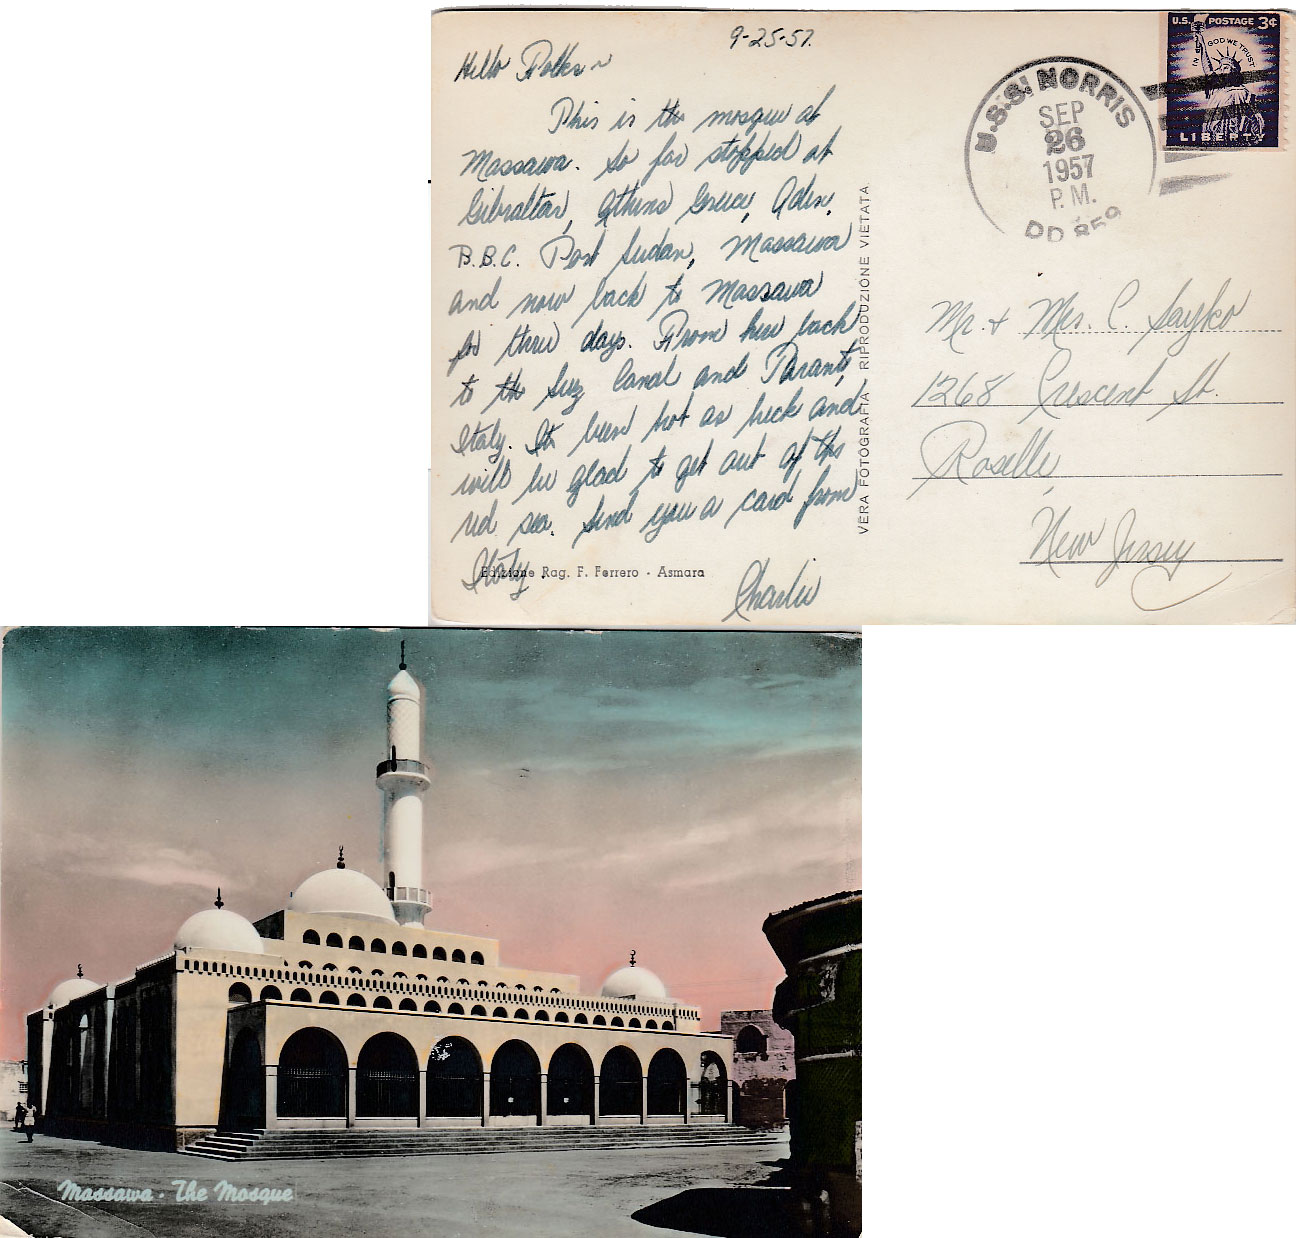 9-25-57.
Hello Folks~
This is the mosque at
Massawa. So far stopped at
Gibraltar, Athens Greece, Aden,
B.B.C. Port Sudan, Massawa
and now back to Massawa
for three days. From here back
to the Suez Canal and Taranto,
Italy. It been hot as heck and
will be glad to get out of the
red sea. Send you a card from
Italy.
Charlie
Edizione Rag. F. Ferrero - Asmara
VERA FOTOGRAFIA - RIPRODUZIONE VIETATA
U.S.S. NORRIS
SEP
26
1957
P.M.
DD 859
U.S. POSTAGE 3¢
IN GOD WE TRUST
LIBERTY
Mr. & Mrs. C. Sayko
1268 Crescent St.
Roselle,
New Jersey
Massawa - The Mosque